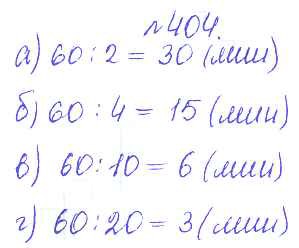 №404.
а) 60 : 2 = 30 (мин)
б) 60 : 4 = 15 (мин)
в) 60 : 10 = 6 (мин)
г) 60 : 20 = 3 (мин)